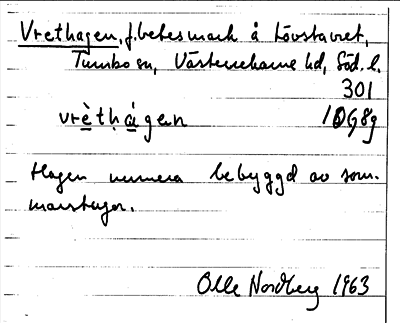 Vrethagen, f. betesmark å Lövstavret,
Tumbo sn, Västerrekarne hd, Söd. l.
301
vrèthágen 10G8g
Hagen numera bebyggd av som-
marstugor.
Olle Nordberg 1963